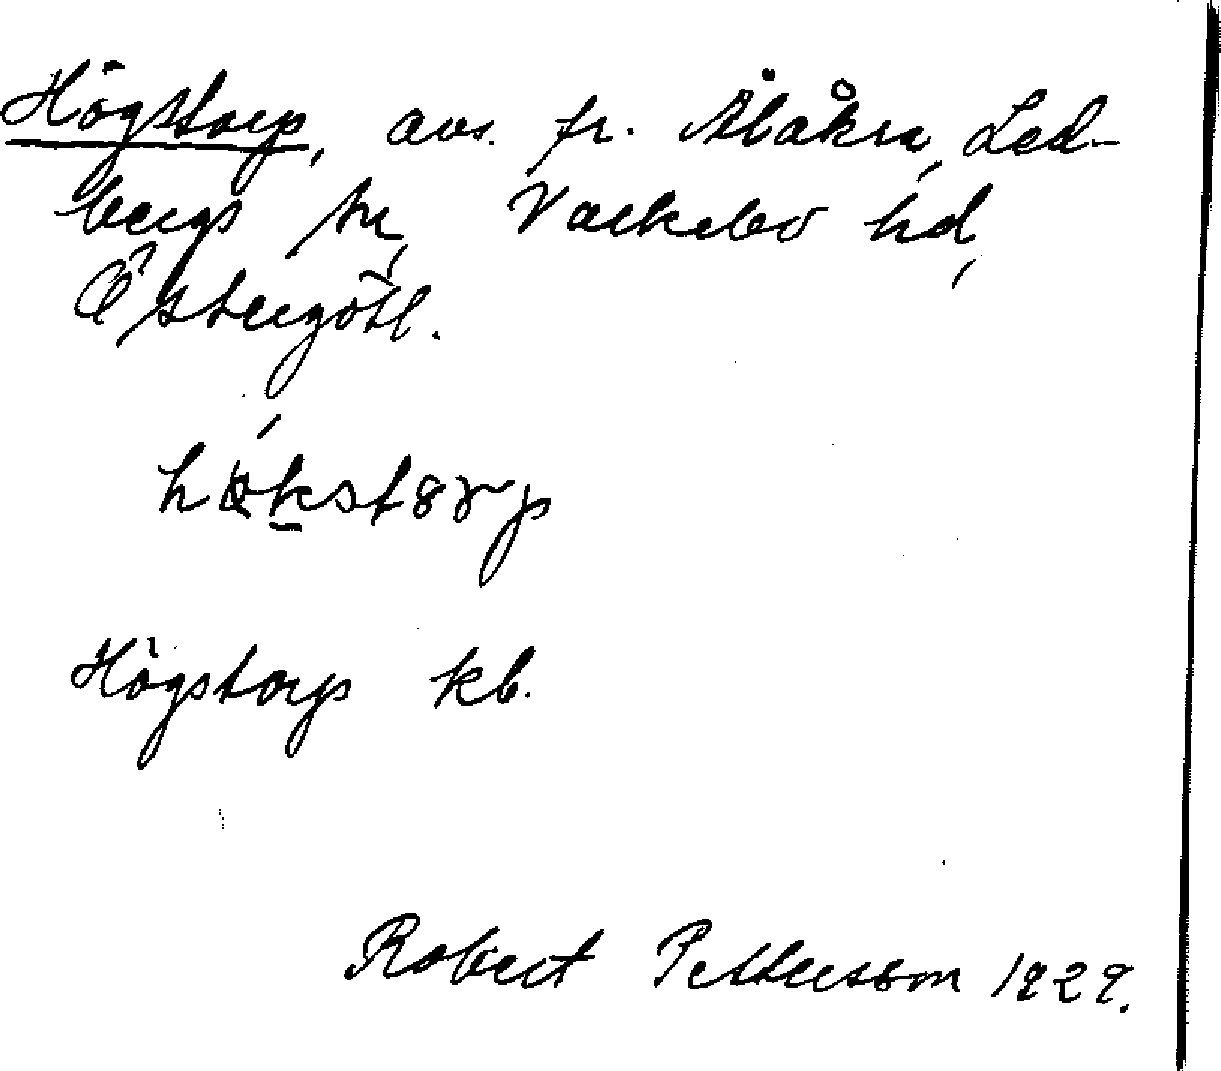 Högstorp, avs. fr. Åbåkra, Led-
bergs sn, Valkebo hd,
Östergötl.
högstorp kb.
Robert Pettersson 1929.